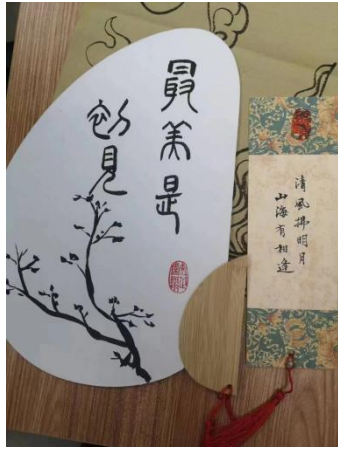 最美是
初見
清風拂明月
山海有相逢